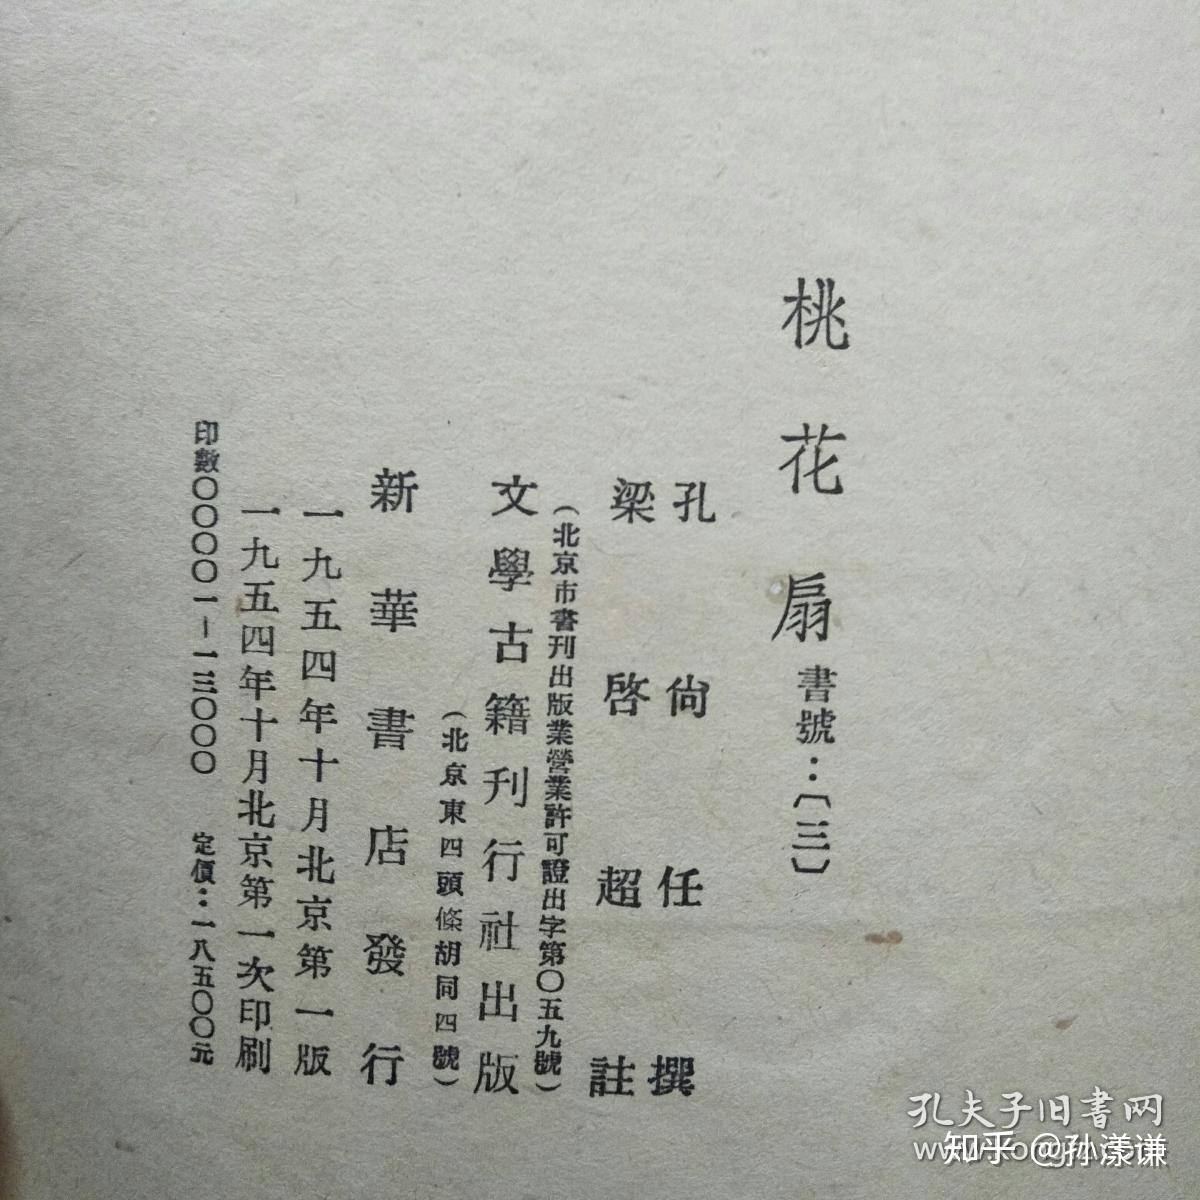 桃花扇 書號：〔三〕
孔尙任撰
梁啓超註
（北京市書刊出版業營業許可證出字第〇五九號）
文學古籍刊行社出版
（北京東四頭條胡同四號）
新華書店發行
一九五四年十月北京第一版
一九五四年十月北京第一次印刷
印數〇〇〇〇一－一三〇〇〇 定價：一八五〇〇元
孔夫子旧書网
知乎 @孙漾谦